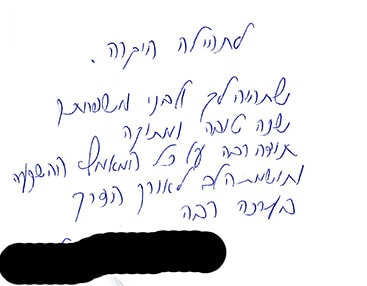 לתהילה היקרה.
שתהיה לך ולבני משפחתך
שנה טובה ומתוקה
תודה רבה על כל המאמץ ההשקעה
ותשומת הלב לאורך הדרך
בערכה רבה